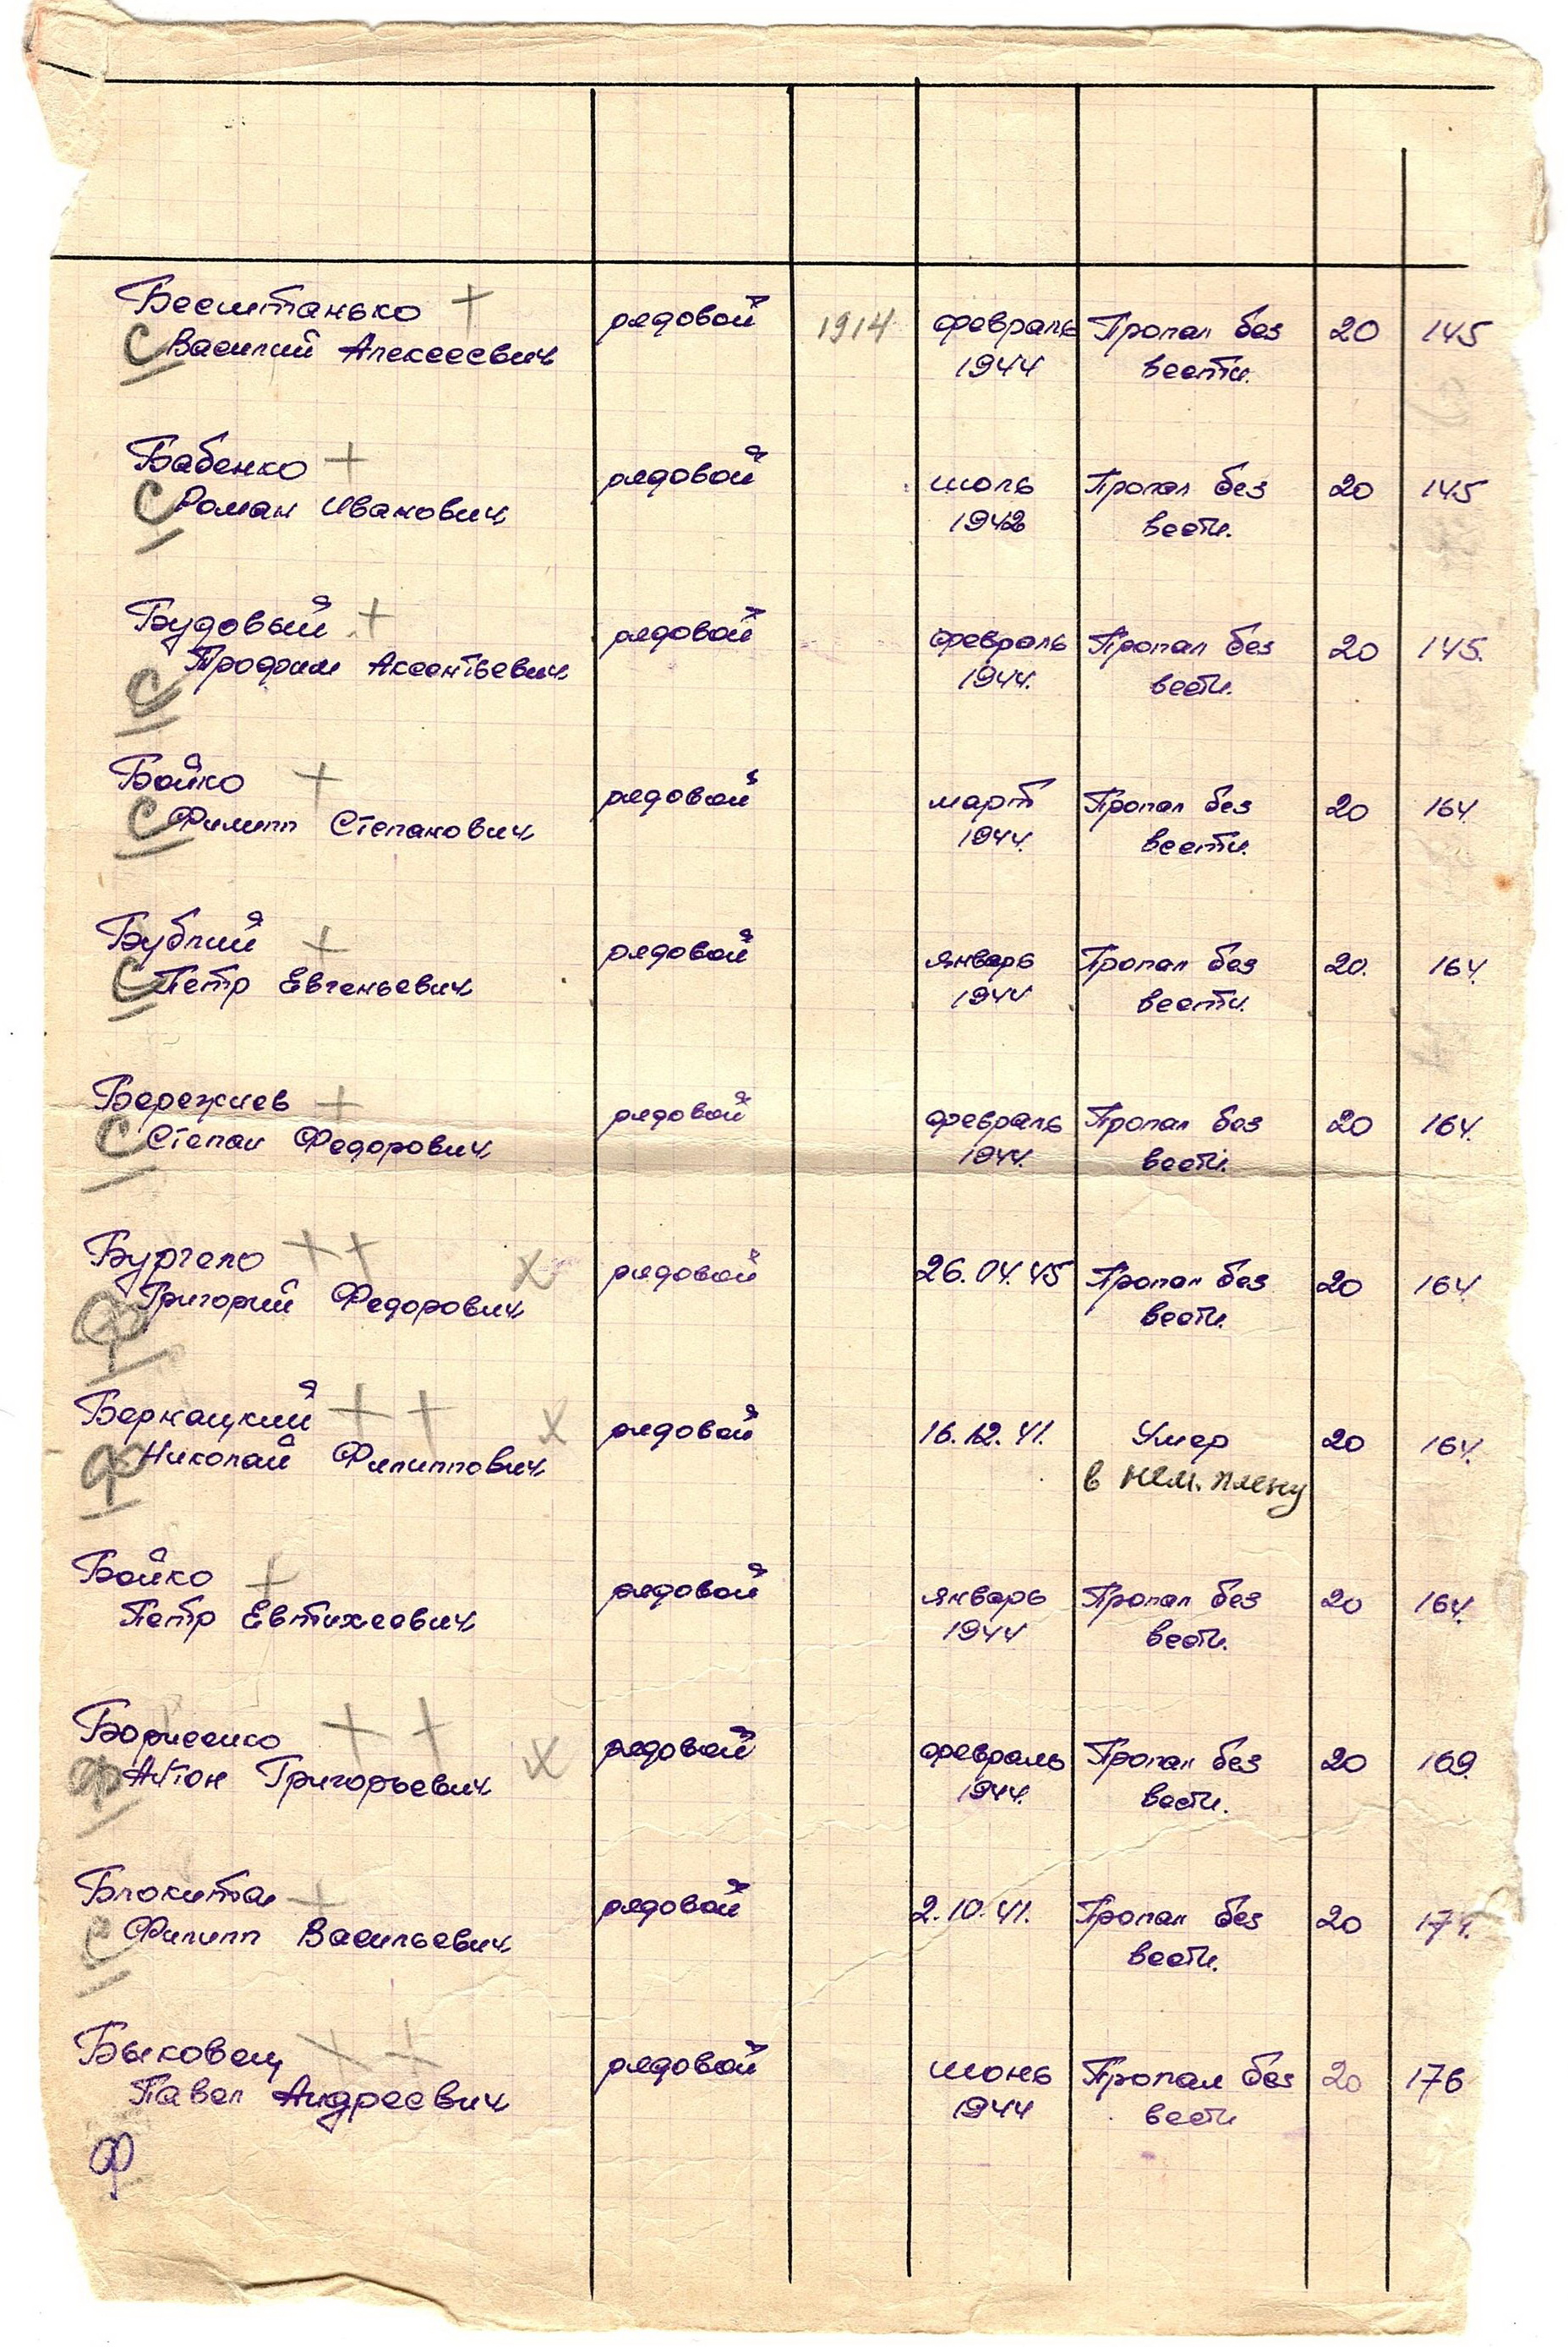 Бесштанько + рядовой 1914 февраль Пропал без 20 145
С Василий Алексеевич 1944 вести.
Бабенко + рядовой июль Пропал без 20 145
С Роман Иванович 1942 вести.
Будовый + рядовой февраль Пропал без 20 145.
С Трофим Аксентьевич 1944. вести.
Бойко + рядовой март Пропал без 20 164
С Филипп Степанович 1944. вести.
Бублий + рядовой январь Пропал без 20. 164
С Петр Евгеньевич 1944 вести.
Бережнев + рядовой февраль Пропал без 20 164.
С Степан Федорович 1944. вести.
Бургело ++ х рядовой 26.04.45 Пропал без 20 164
Ф Григорий Федорович вести.
Бернацкий ++ х рядовой 16.12.41. Умер 20 164.
Ф Николай Филиппович в нем. плену
Бойко + рядовой январь Пропал без 20 164.
Петр Евтихеевич 1944 вести.
Борисенко ++ х рядовой февраль Пропал без 20 169.
Ф Антон Григорьевич 1944. вести.
Блокитан + рядовой 2.10.41. Пропал без 20 174.
С Филипп Васильевич вести.
Быковец ++ рядовой июнь Пропал без 20 176
Павел Андреевич 1944 вести
Ф